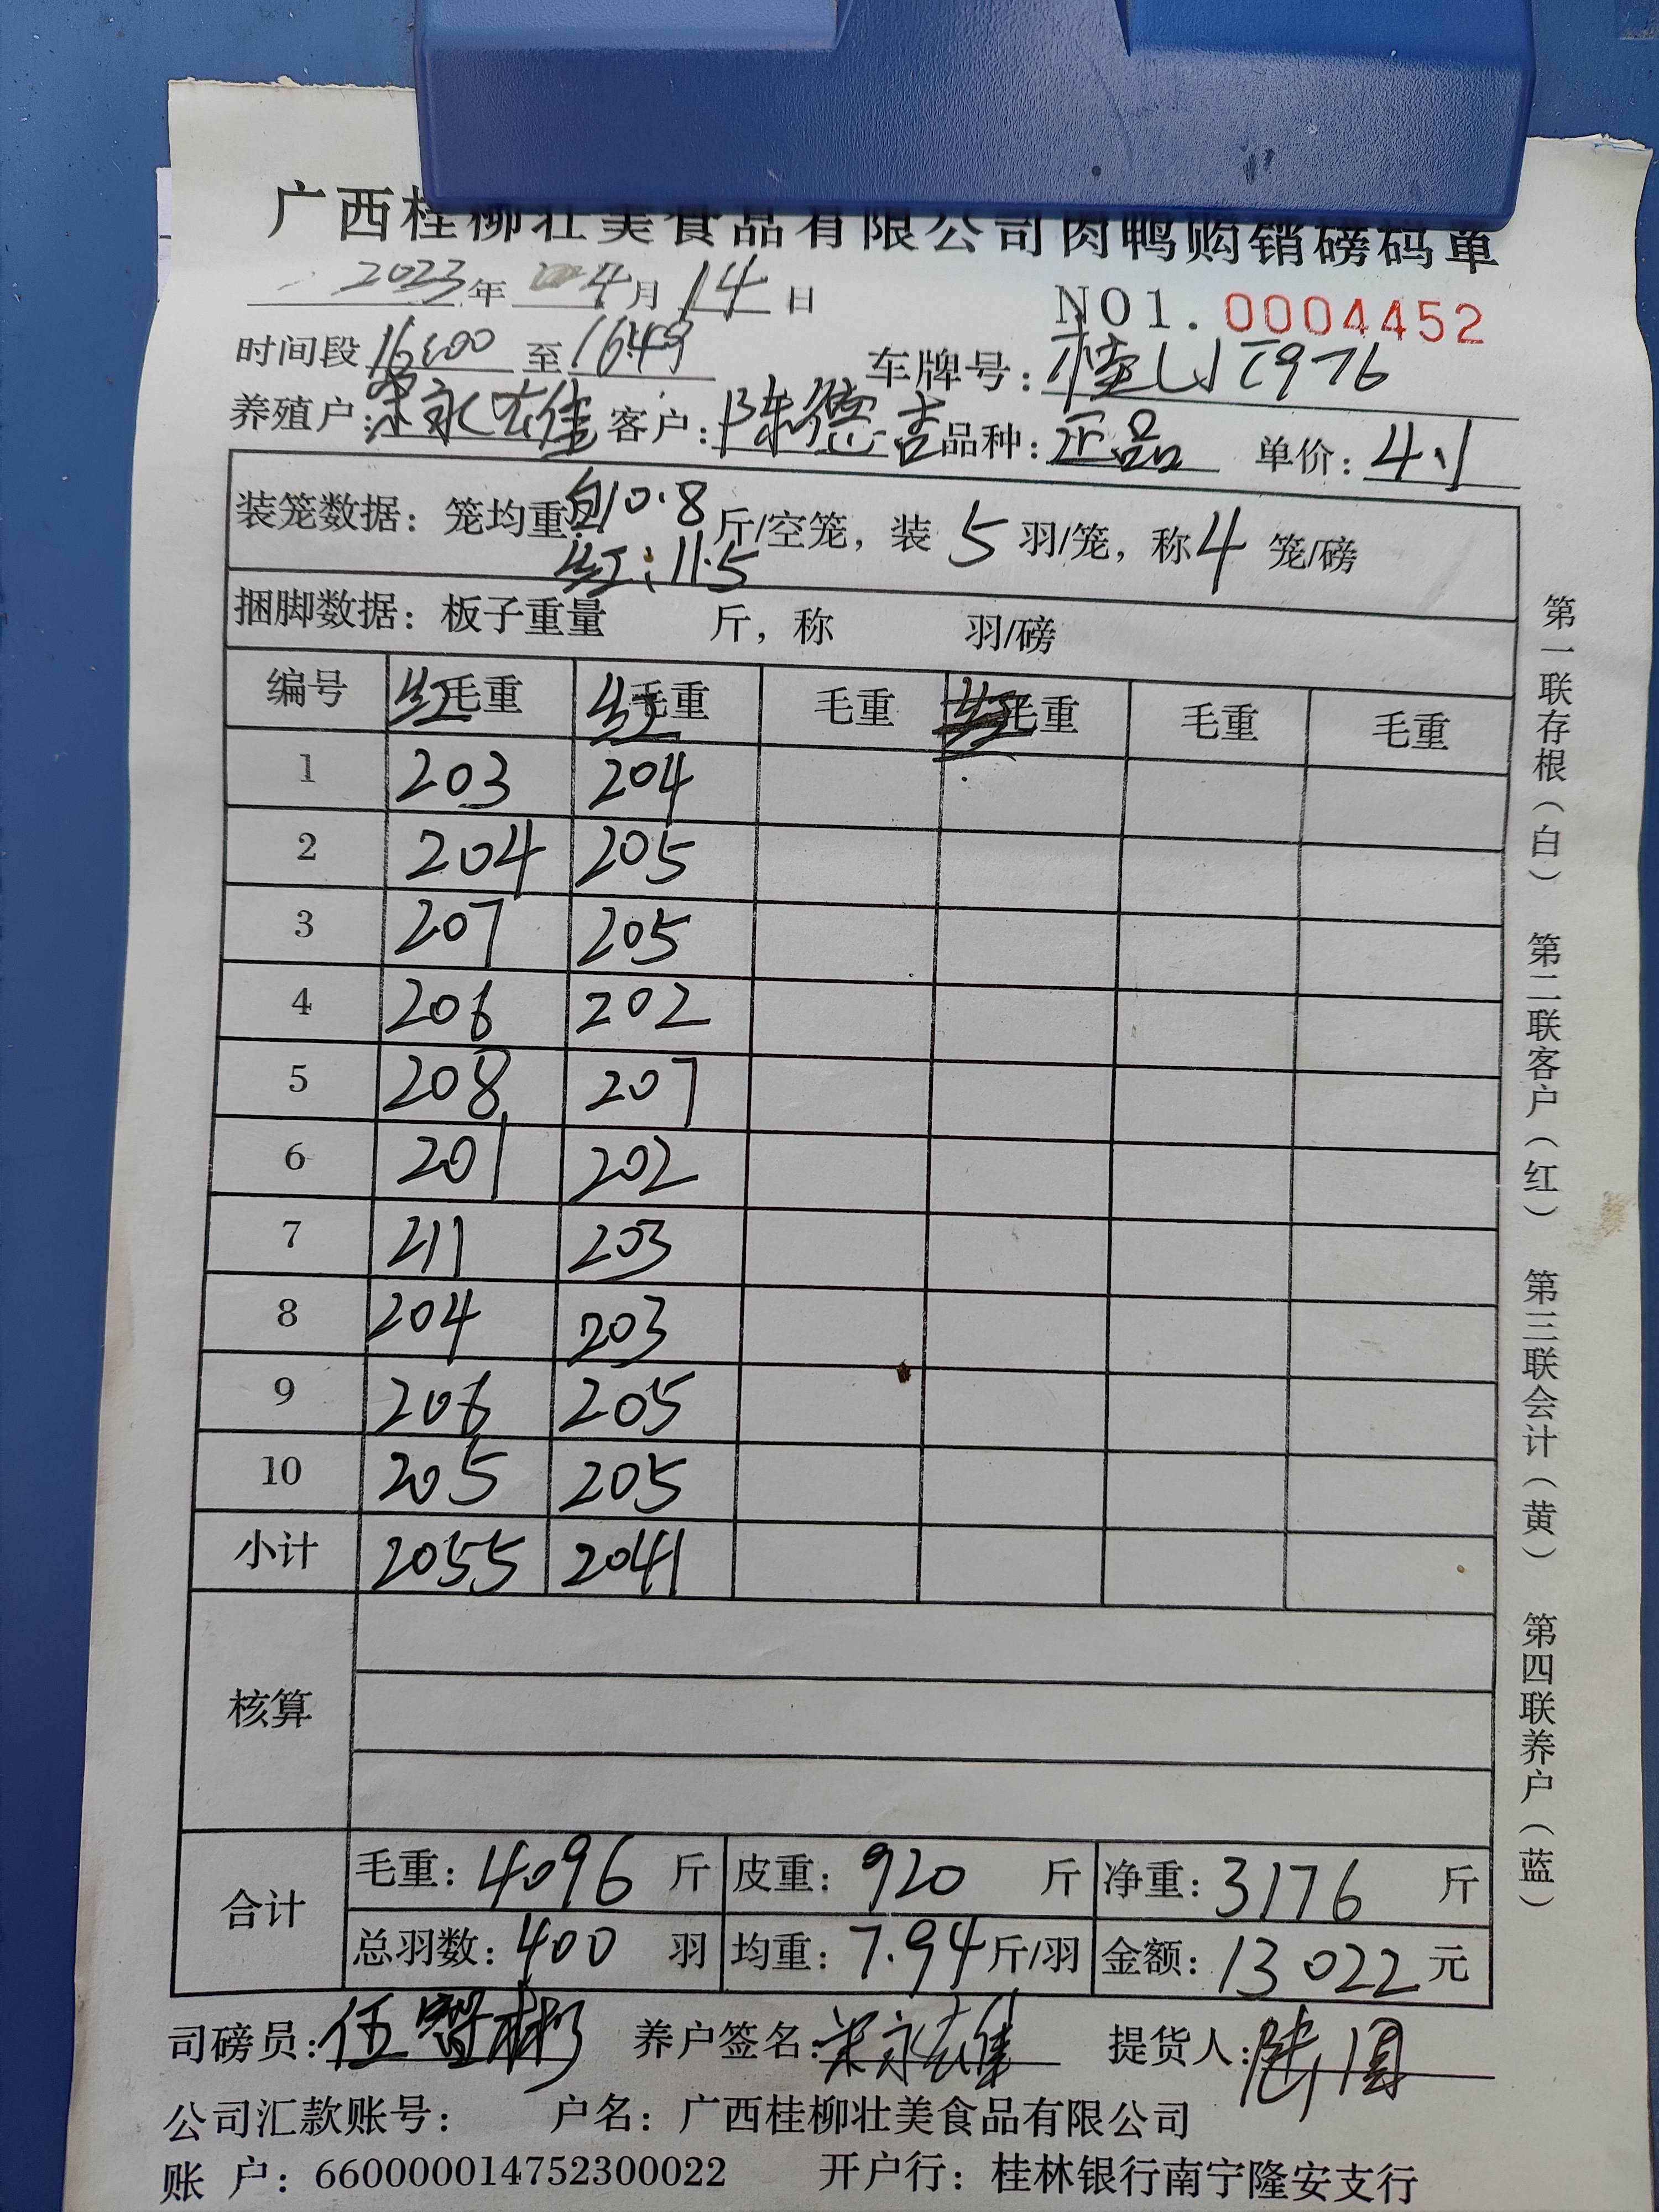 广西桂柳壮美食品有限公司肉鸭购销磅码单
2023年 4月14日
NO1.0004452
时间段16:00至16:49 车牌号:桂
养殖户: 永雄 客户:陈德吉 品种:正品 单价:4.1
装笼数据:笼均重 白10.8 斤/空笼,装5羽/笼,称4笼/磅
红:11.5
捆脚数据:板子重量 斤,称 羽/磅
编号 红毛重 红毛重 毛重 毛重 毛重 毛重
1 203 204
2 204 205
3 207 205
4 206 202
5 208 207
6 201 202
7 211 203
8 204 203
9 206 205
10 205 205
小计 2055 2041
核算
合计 毛重:4096斤 皮重:920斤 净重:3176斤
总羽数:400羽 均重:7.94斤/羽 金额:13022元
司磅员:伍 彬 养户签名: 永雄 提货人:
公司汇款账号: 户名:广西桂柳壮美食品有限公司
账 户:660000014752300022 开户行:桂林银行南宁隆安支行
第一联存根(白) 第二联客户(红) 第三联会计(黄) 第四联养户(蓝)